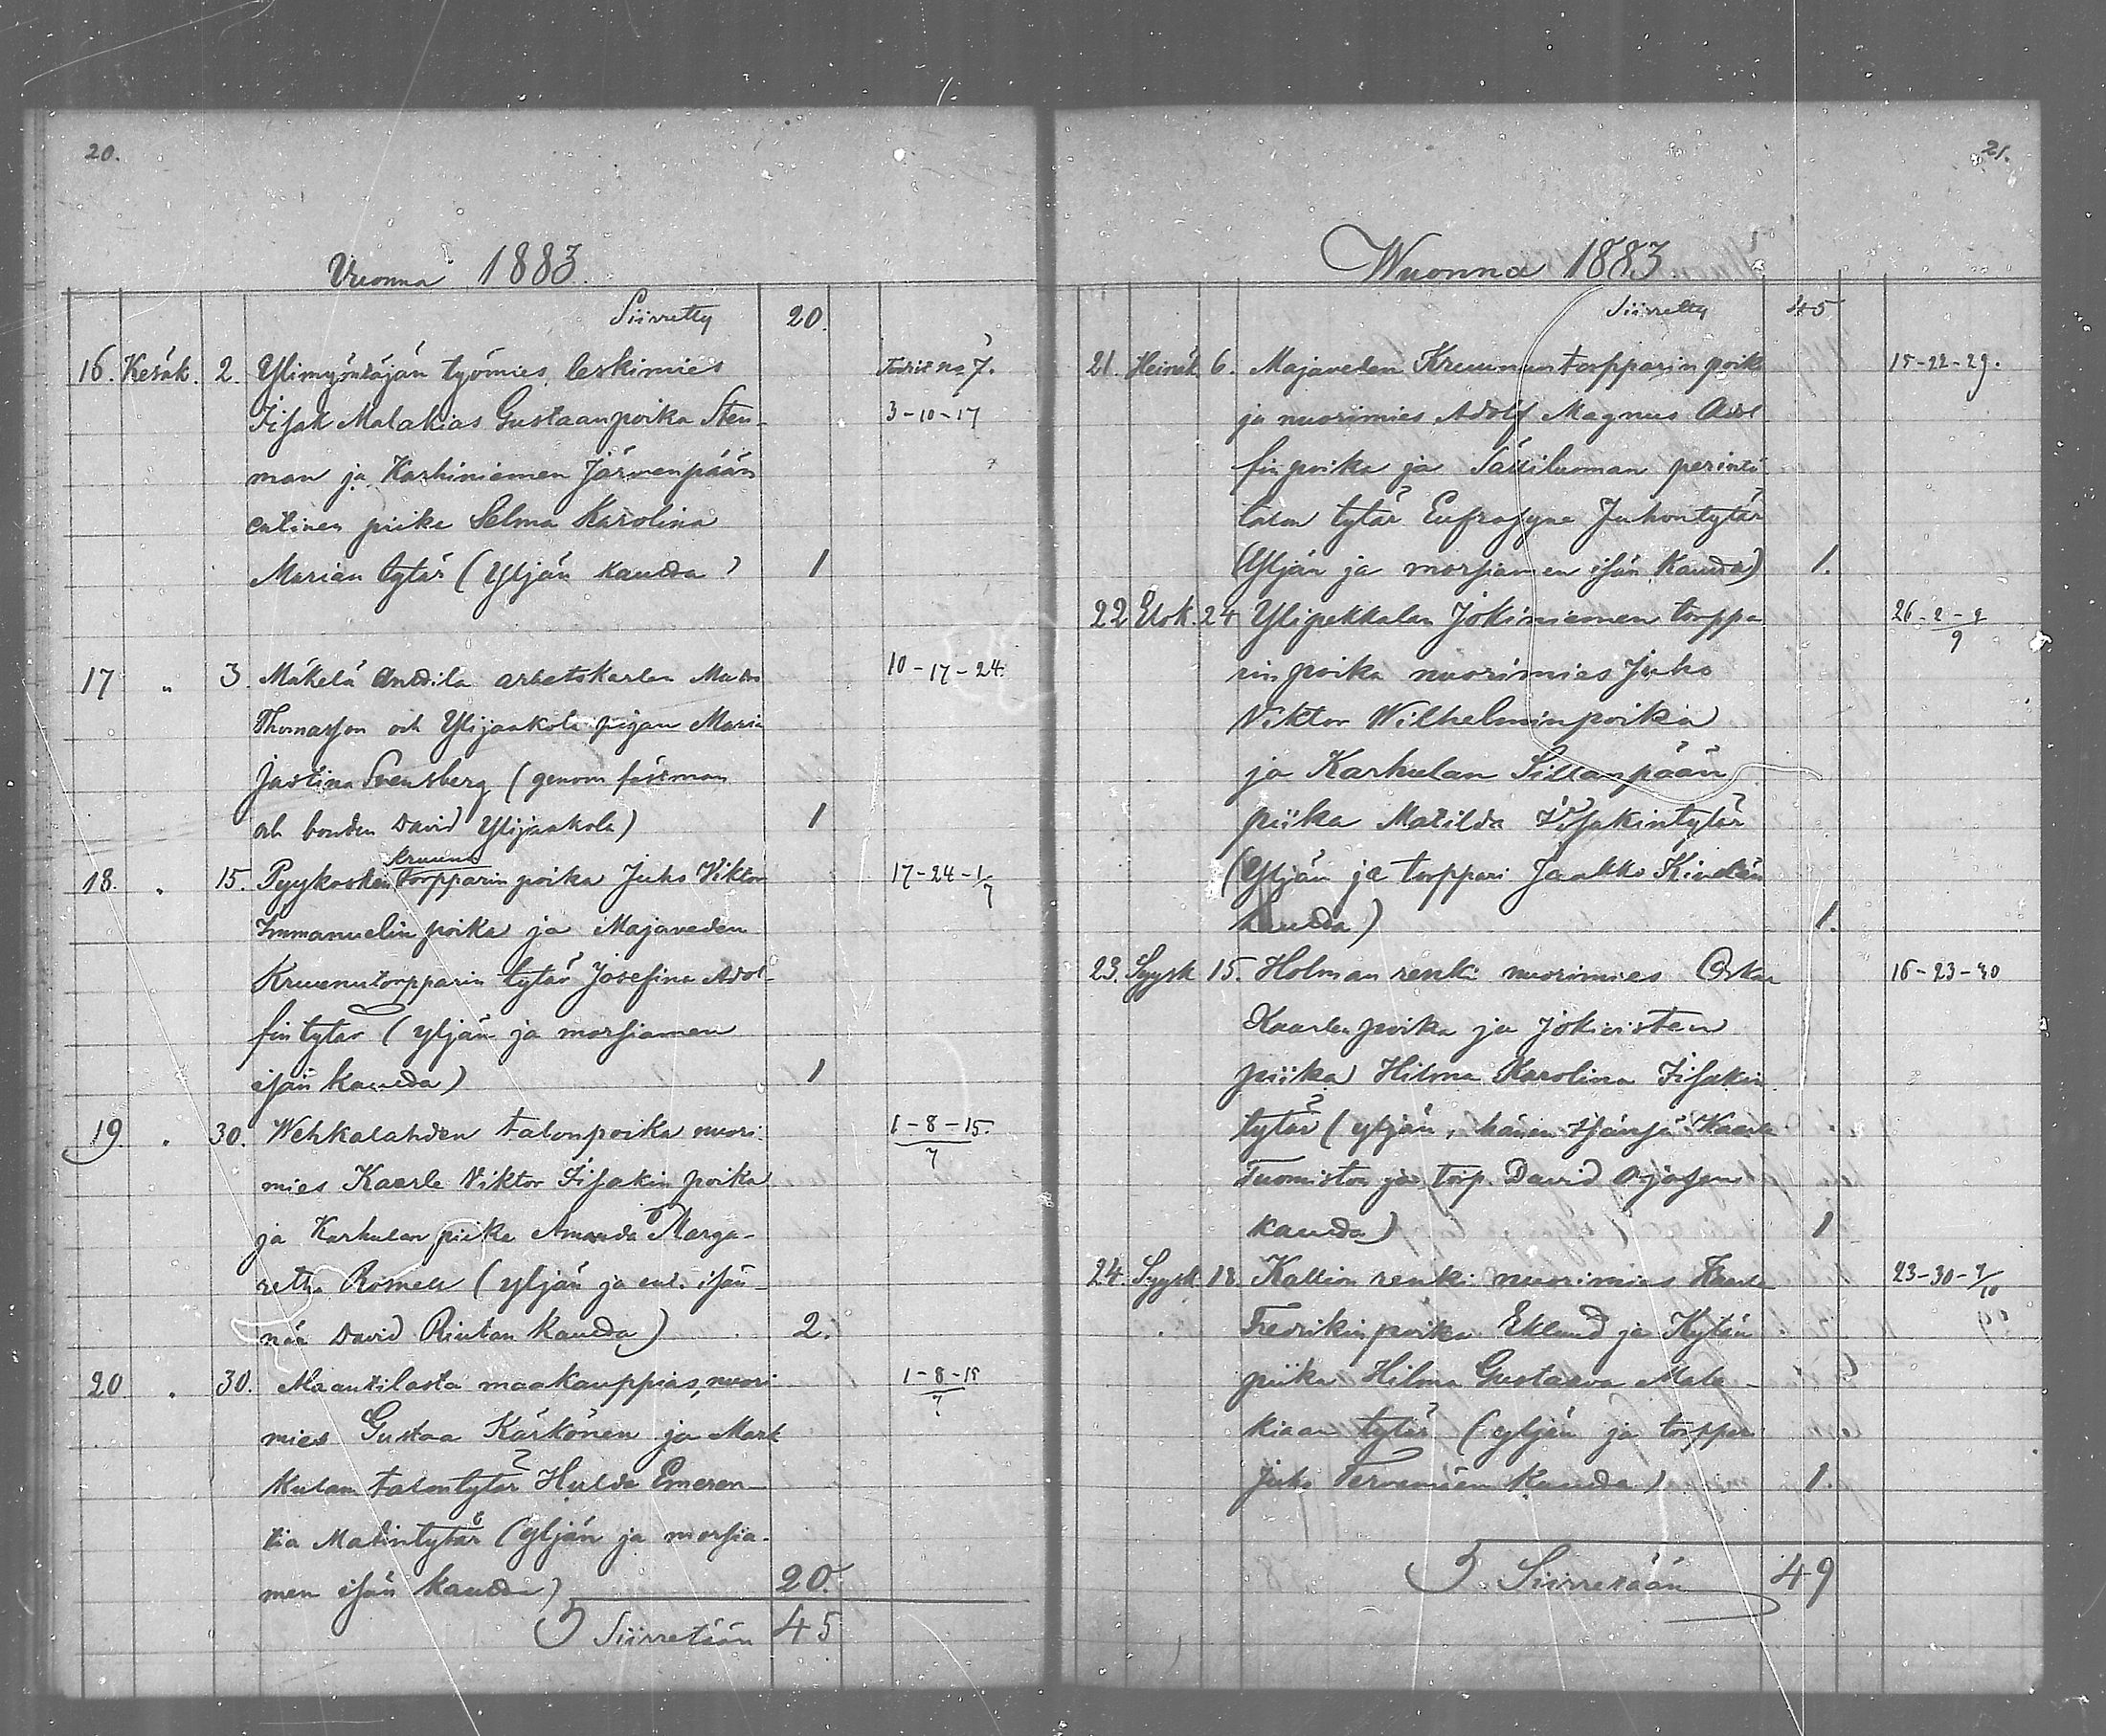 20.
Vuonna 1883.
Siirretty 20.
16. Kesäk. 2. Ylimyöntäjän työmies, leskimies 7.
Iisak Malakias Gustaanpoika Sten- 3-10-17
man ja Karhiniemen Järvenpään
entinen piika Selma Karolina
Marian tytär (Yljän kautta) 1
17 " 3. Mäkelä Anttila arbetskarlen 10-17-24.
Thomasson och Ylijaakola pigan Maria
Justina Svensberg (genom fästman
och bonden David Ylijaakola) 1
kruunu
18. " 15. Pyykosken torpparin poika Juho Viktor 17-24-1/7
Immanuelin poika ja Majaveden
Kruununtorpparin tytär Josefina Adol-
fintytär (yljän ja morsiamen
isän kautta) 1
19. " 30. Wehkalahden talonpoika nuori 1-8-15./7
mies Kaarle Viktor Iisakin poika
ja Karhulan piika Amanda Marga-
retha Romell (yljän ja ent. isän-
nän David Rintan kautta) 2.
20 " 30. Maantilasta maakauppias, nuori 1-8-15/7
mies Gustaa Kärkönen ja Mark
kulan talontytär Hulda Emeren-
tia Matintytär (yljän ja morsia-
men isän kautta) 20.
Siirretään 45
21.
Wuonna 1883
Siirretty 45
21. Heinäk. 6. Majaveden Kruununtorpparin poika 15-22-29.
ja nuorimies Adolf Magnus Adol
fin poika ja Sässiluoman perintö
talon tytär Eufrosyne Juhontytär
(Yljän ja morsiamen isän kautta) 1.
22 Elok. 24 Ylipekkalan Jokiniemen torppa 26-2-9/9
rin poika nuorimies Juho
Viktor Wilhelminpoika
ja Karhulan Sillanpään
piika Matilda Iisakintytär
(Yljän ja torppari Jaakko
kautta) 1.
23. Syysk 15. Holman renki nuorimies Oskar 16-23-30
Kaarlen poika ja Jokisisten
piika Hilma Karolina Iisakin
tytär (yljän, hänen isänsä Kaarle
Tuomiston ja torp. David Ojasen
kautta) 1
24. Syysk. 18. Kallion renki nuorimies Kaarle 23-30-7/10
Fredrikin poika Eklund ja Kytän
piika Hilma Gustaava Mala-
kiaan tytär (yljän ja torppari
Juho Tervaniemen kautta) 1.
Siirretään 49